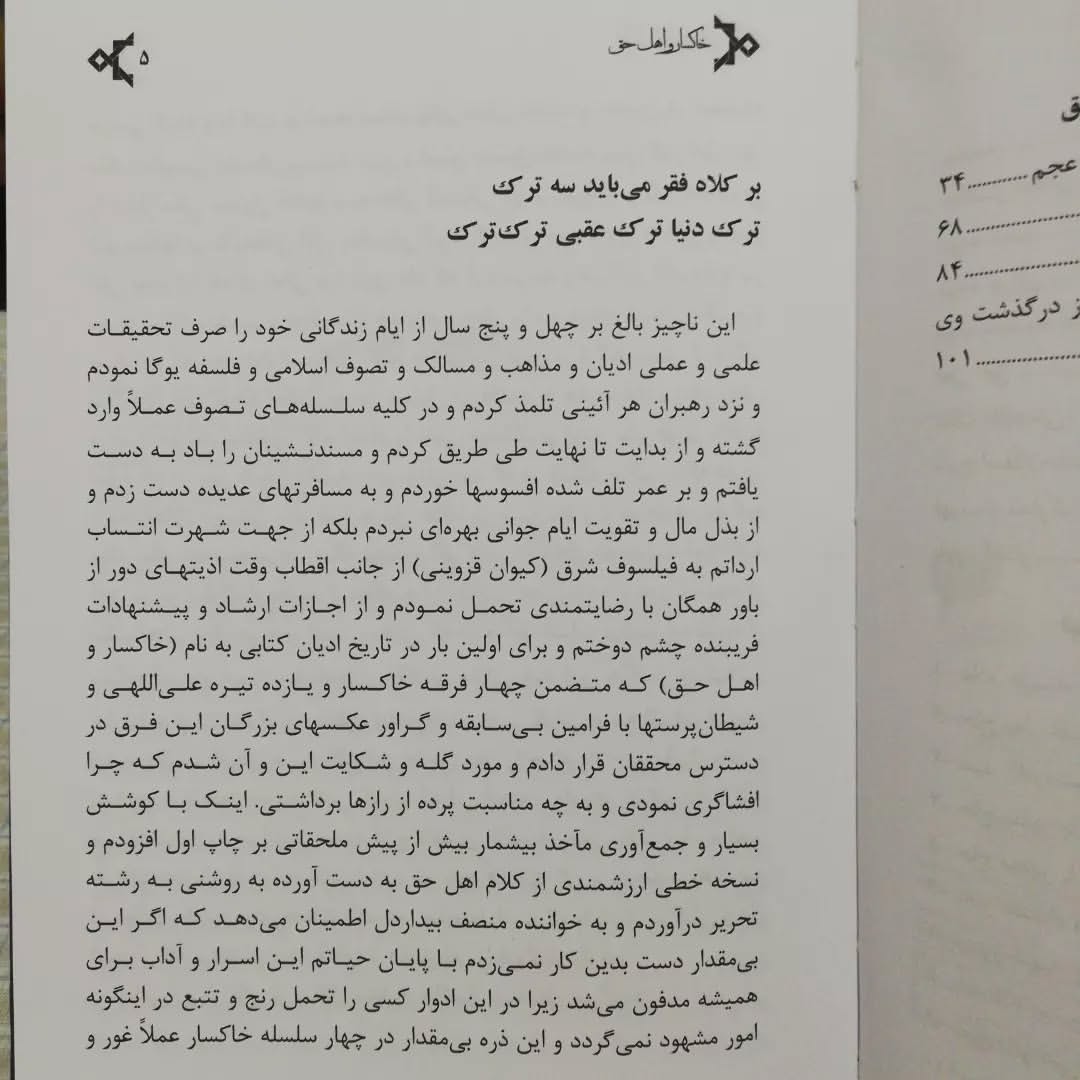 خاکسار و اهل حق
۵
بر کلاه فقر می‌باید سه ترک
ترک دنیا ترک عقبی ترک‌ترک
این ناچیز بالغ بر چهل و پنج سال از ایام زندگانی خود را صرف تحقیقات
علمی و عملی ادیان و مذاهب و مسالک و تصوف اسلامی و فلسفه یوگا نمودم
و نزد رهبران هر آئینی تلمذ کردم و در کلیه سلسله‌های تصوف عملاً وارد
گشته و از بدایت تا نهایت طی طریق کردم و مسندنشینان را باد به دست
یافتم و بر عمر تلف شده افسوسها خوردم و به مسافرتهای عدیده دست زدم و
از بذل مال و تقویت ایام جوانی بهره‌ای نبردم بلکه از جهت شهرت انتساب
ارداتم به فیلسوف شرق (کیوان قزوینی) از جانب اقطاب وقت اذیتهای دور از
باور همگان با رضایتمندی تحمل نمودم و از اجازات ارشاد و پیشنهادات
فریبنده چشم دوختم و برای اولین بار در تاریخ ادیان کتابی به نام (خاکسار و
اهل حق) که متضمن چهار فرقه خاکسار و یازده تیره علی‌اللهی و
شیطان‌پرستها با فرامین بی‌سابقه و گراور عکسهای بزرگان این فرق در
دسترس محققان قرار دادم و مورد گله و شکایت این و آن شدم که چرا
افشاگری نمودی و به چه مناسبت پرده از رازها برداشتی. اینک با کوشش
بسیار و جمع‌آوری مآخذ بیشمار بیش از پیش ملحقاتی بر چاپ اول افزودم و
نسخه خطی ارزشمندی از کلام اهل حق به دست آورده به روشنی به رشته
تحریر درآوردم و به خواننده منصف بیداردل اطمینان می‌دهد که اگر این
بی‌مقدار دست بدین کار نمی‌زدم با پایان حیاتم این اسرار و آداب برای
همیشه مدفون می‌شد زیرا در این ادوار کسی را تحمل رنج و تتبع در اینگونه
امور مشهود نمی‌گردد و این ذره بی‌مقدار در چهار سلسله خاکسار عملاً غور و
عجم ............ ۳۴
.................... ۶۸
.................... ۸۴
ز درگذشت وی
.................... ۱۰۱